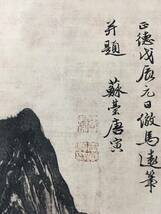 正德戊辰元日倣馬遠筆
并題
蘇臺唐寅